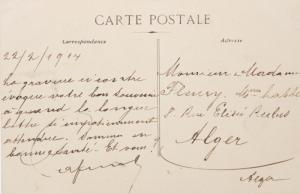 CARTE POSTALE
Correspondance
Adresse
22/2/1914
La gravure ci contre
évoque votre bon souvenir
à quand la longue
lettre si impatiemment
attendue. Sommes en
bonne santé. Et vous?
Monsieur & Madame
Fleury,
8 Rue Elisée Reclus
Alger
Alger